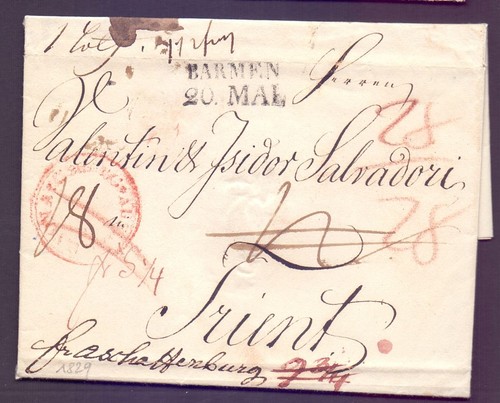 1 Loth.
BARMEN
20. MAI.
Herren
Valentin & Isidor Salvadori
28
28
18
Trient.
fr aschaffenburg
1829